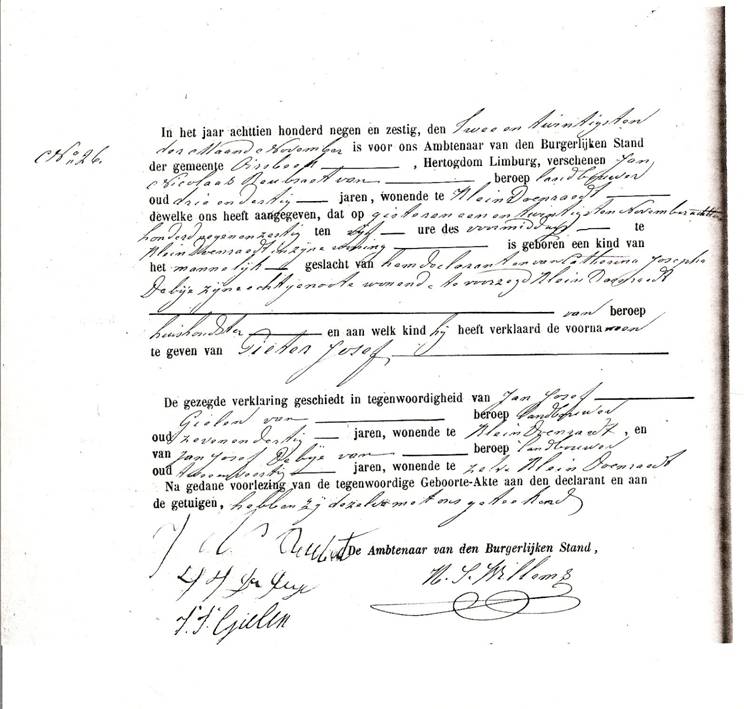 No 26.
In het jaar achttien honderd negen en zestig, den Twee en twintigsten
der Maand November is voor ons Ambtenaar van den Burgerlijken Stand
der gemeente Oirsbeek, Hertogdom Limburg, verschenen Jan
Nicolaas van beroep landbouwer
oud drie en dertig jaren, wonende te Klein Doenraedt
dewelke ons heeft aangegeven, dat op gisteren een en twintigsten November achttien
honderd negen en zestig ten vijf ure des voormiddags te
Klein Doenraedt in zijne woning is geboren een kind van
het mannelijk geslacht van hem declarant en van Catharina Josepha
Debije zijne echtgenoote wonende te voorzegd Klein Doenraedt
van beroep
huishoudster en aan welk kind hij heeft verklaard de voornamen
te geven van Pieter Josef
De gezegde verklaring geschiedt in tegenwoordigheid van Jan Josef
Gielen van beroep landbouwer
oud zeven en dertig jaren, wonende te Klein Doenraedt, en
van Jan Josef Debije van beroep landbouwer
oud jaren, wonende te zelve Klein Doenraedt
Na gedane voorlezing van de tegenwoordige Geboorte-Akte aan den declarant en aan
de getuigen, hebben zij dezelve met ons geteekend
De Ambtenaar van den Burgerlijken Stand,
H. J. Willems
J. J. Gielen